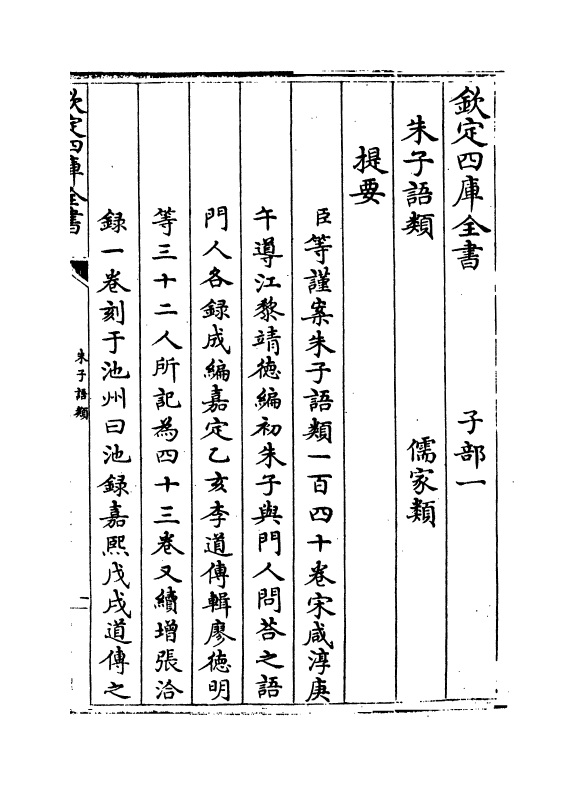 欽定四庫全書 子部一
朱子語類 儒家類
提要
臣等謹案朱子語類一百四十卷宋咸淳庚
午導江黎靖德編初朱子與門人問荅之語
門人各録成編嘉定乙亥李道傳輯廖德明
等三十二人所記為四十三卷又續增張洽
録一卷刻于池州曰池録嘉熙戊戌道傳之
欽定四庫全書
朱子語類
一